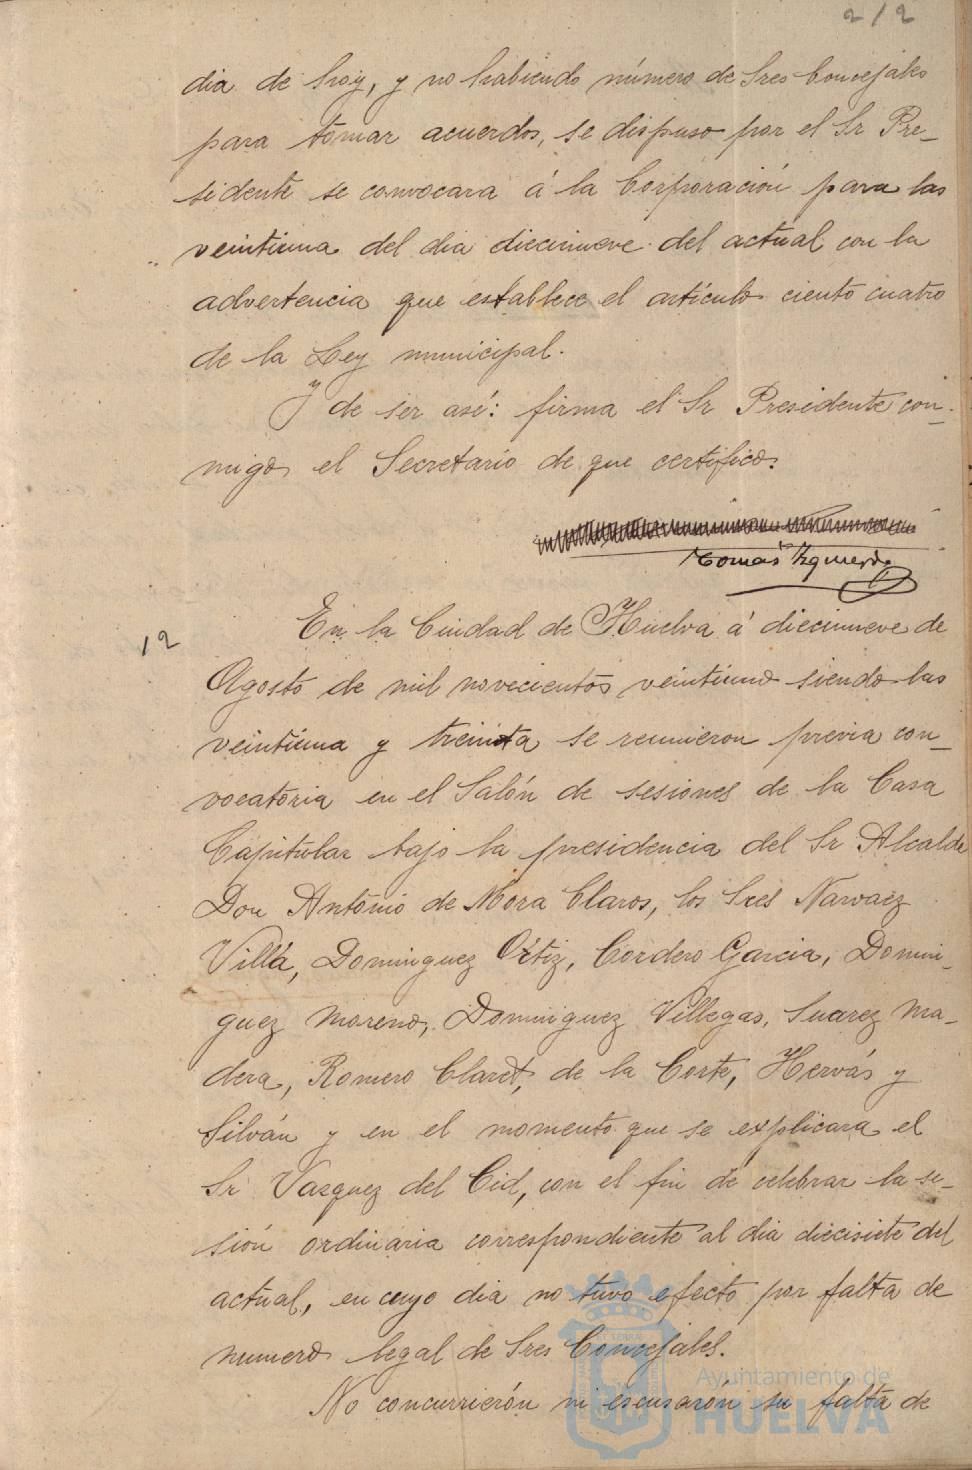 2/2
dia de hoy, y no habiendo número de Sres Concejales
para tomar acuerdos, se dispuso por el Sr Pre-
sidente se convocara á la Corporación para las
veintiuna del dia diecinueve del actual con la
advertencia que establece el artículo ciento cuatro
de la Ley municipal.
Y de ser así: firma el Sr Presidente con-
migo el Secretario de que certifico.
Tomás Izquierdo
12
En la Ciudad de Huelva á diecinueve de
Agosto de mil novecientos veintiuno siendo las
veintiuna y treinta se reunieron previa con-
vocatoria en el Salón de sesiones de la Casa
Capitular bajo la presidencia del Sr Alcalde
Don António de Mora Claros, los Sres Narvaez
Villa, Dominguez Ortiz, Cordero Garcia, Domin-
guez Moreno, Dominguez Villegas, Suarez Ma-
dera, Romero Claret, de la Corte, Hervás y
Silván y en el momento que se explicara el
Sr Vazquez del Cid, con el fin de celebrar la se-
sión ordinaria correspondiente al dia diecisiete del
actual, en cuyo dia no tuvo efecto por falta de
numero legal de Sres Concejales.
No concurrierón ni escusarón su falta de
Ayuntamiento de
HUELVA